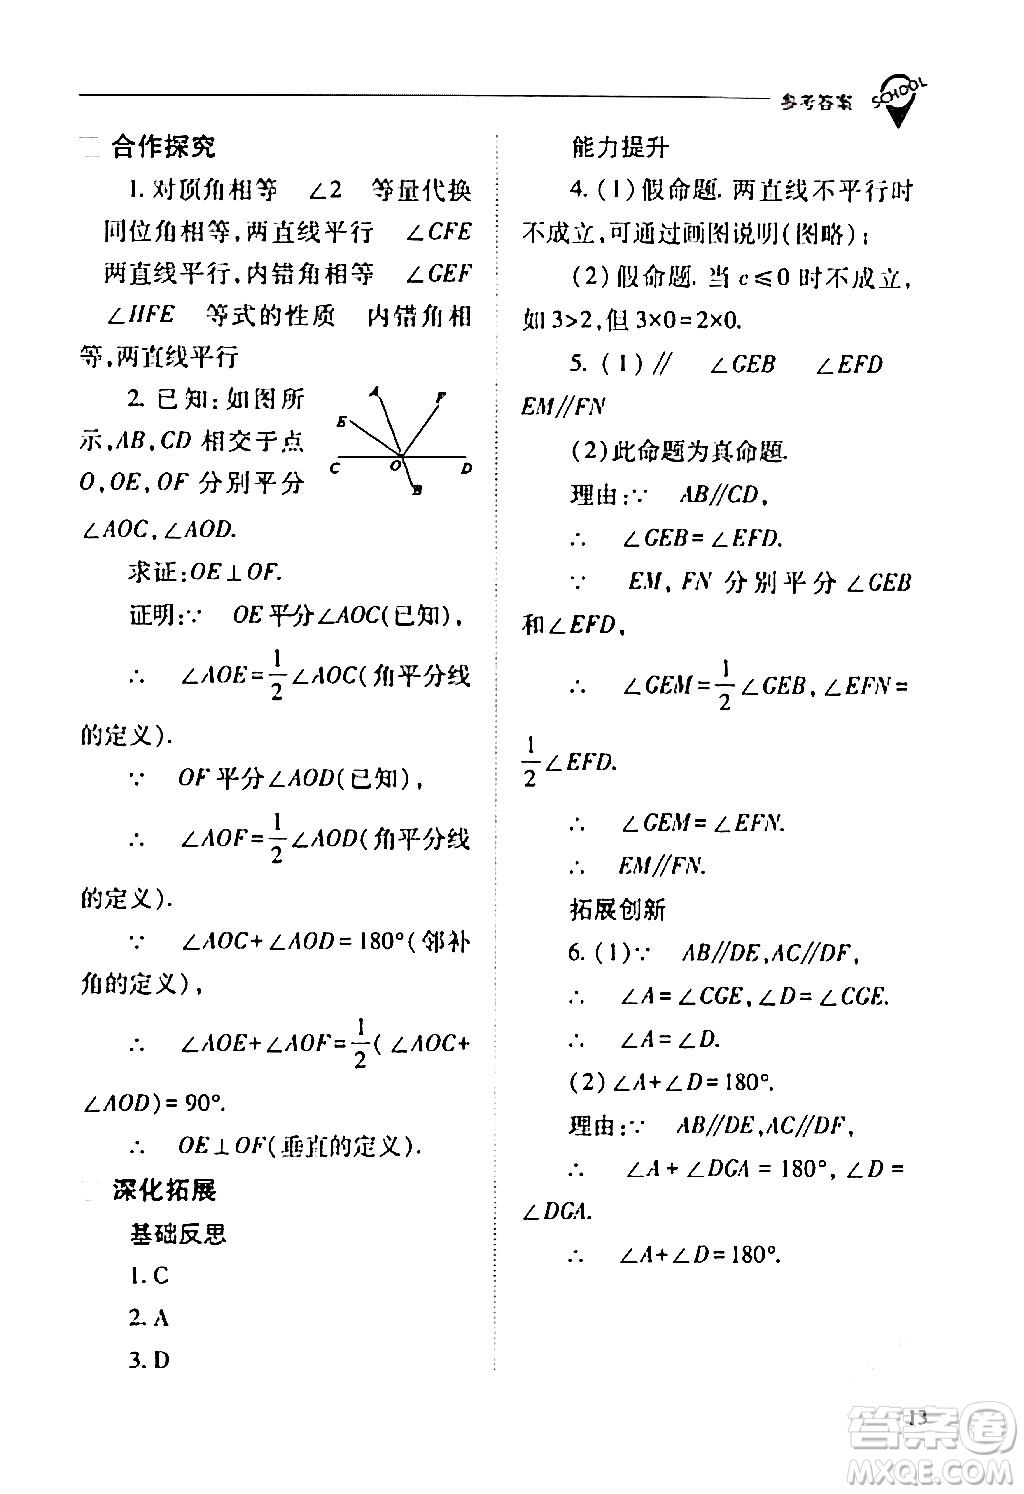 参考答案
SCHOOL
合作探究
1. 对顶角相等 ∠2 等量代换
同位角相等,两直线平行 ∠CFE
两直线平行,内错角相等 ∠GEF
∠HFE 等式的性质 内错角相
等,两直线平行
2. 已知:如图所
示,AB,CD 相交于点
O,OE,OF 分别平分
∠AOC,∠AOD.
A
F
E
C
O
D
B
求证:OE⊥OF.
证明:∵ OE平分∠AOC(已知),
∴ ∠AOE=1/2∠AOC(角平分线
的定义).
∵ OF平分∠AOD(已知),
∴ ∠AOF=1/2∠AOD(角平分线
的定义).
∵ ∠AOC+∠AOD=180°(邻补
角的定义),
∴ ∠AOE+∠AOF=1/2(∠AOC+
∠AOD)=90°.
∴ OE⊥OF(垂直的定义).
深化拓展
基础反思
1. C
2. A
3. D
能力提升
4. (1)假命题. 两直线不平行时
不成立,可通过画图说明(图略);
(2)假命题. 当 c≤0 时不成立,
如 3>2,但 3×0=2×0.
5. (1)∥ ∠GEB ∠EFD
EM∥FN
(2)此命题为真命题.
理由:∵ AB∥CD,
∴ ∠GEB=∠EFD.
∵ EM,FN 分别平分∠GEB
和∠EFD,
∴ ∠GEM=1/2∠GEB,∠EFN=
1/2∠EFD.
∴ ∠GEM=∠EFN.
∴ EM∥FN.
拓展创新
6. (1)∵ AB∥DE,AC∥DF,
∴ ∠A=∠CGE,∠D=∠CGE.
∴ ∠A=∠D.
(2)∠A+∠D=180°.
理由:∵ AB∥DE,AC∥DF,
∴ ∠A+∠DGA=180°,∠D=
∠DGA.
∴ ∠A+∠D=180°.
13
答案圈
MXQE.COM